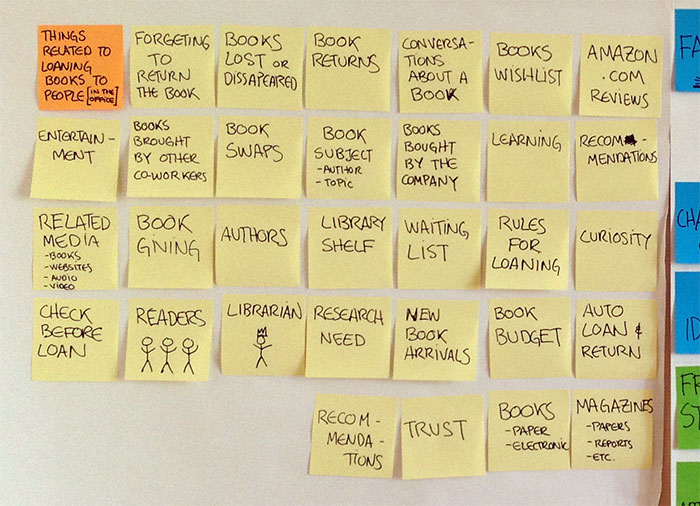 THINGS
RELATED TO
LOANING
BOOKS TO
PEOPLE [IN THE
OFFICE]
FORGETING
TO
RETURN
THE BOOK
BOOKS
LOST OR
DISSAPEARED
BOOK
RETURNS
CONVERSA-
TIONS
ABOUT A
BOOK
BOOKS
WISHLIST
AMAZON
.COM
REVIEWS
ENTERTAIN-
MENT
BOOKS
BROUGHT
BY OTHER
CO-WORKERS
BOOK
SWAPS
BOOK
SUBJECT
-AUTHOR
-TOPIC
BOOKS
BOUGHT
BY THE
COMPANY
LEARNING
RECOM-
MENDATIONS
RELATED
MEDIA
-BOOKS
-WEBSITES
-AUDIO
-VIDEO
BOOK
GIVING
AUTHORS
LIBRARY
SHELF
WAITING
LIST
RULES
FOR
LOANING
CURIOSITY
CHECK
BEFORE
LOAN
READERS
LIBRARIAN
RESEARCH
NEED
NEW
BOOK
ARRIVALS
BOOK
BUDGET
AUTO
LOAN &
RETURN
RECOM-
MENDA-
TIONS
TRUST
BOOKS
-PAPER
-ELECTRONIC
MAGAZINES
-PAPERS
-REPORTS
-ETC.
FA
CHA
ID
FR
ST